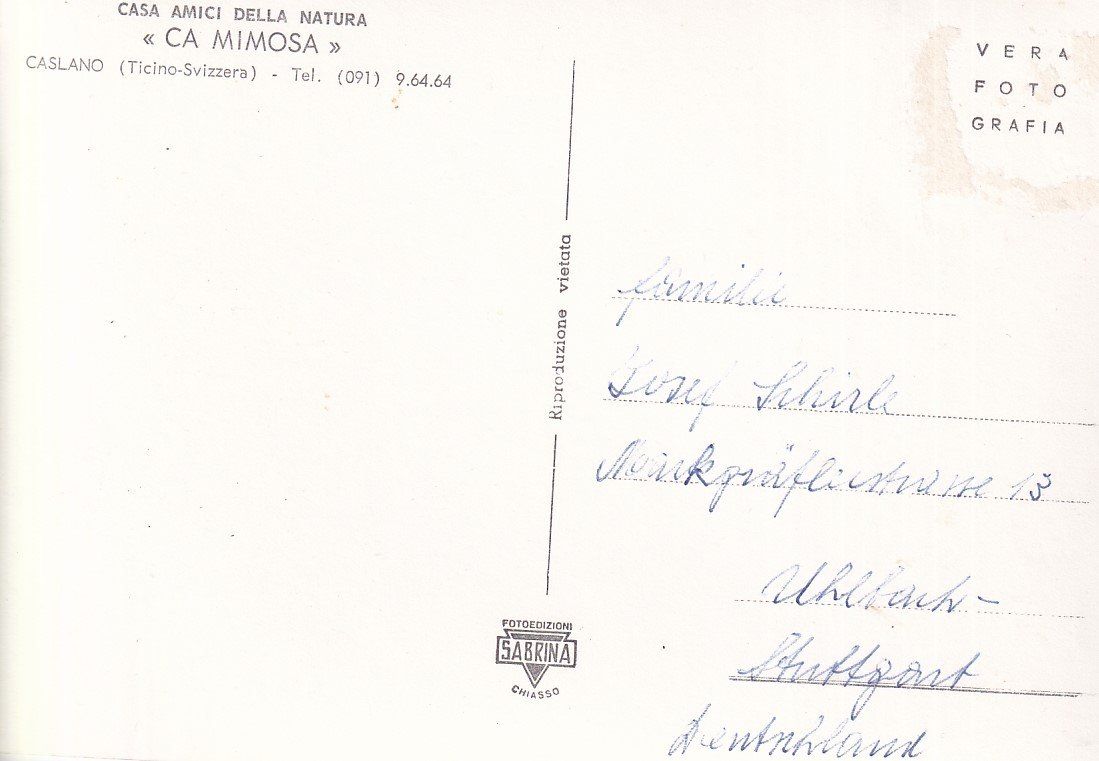 CASA AMICI DELLA NATURA
« CA MIMOSA »
CASLANO (Ticino-Svizzera) - Tel. (091) 9.64.64
VERA
FOTO
GRAFIA
Riproduzione vietata
Familie
Josef Schirle
13
Uhlbach-
Stuttgart
Deutschland
FOTOEDIZIONI
SABRINA
CHIASSO